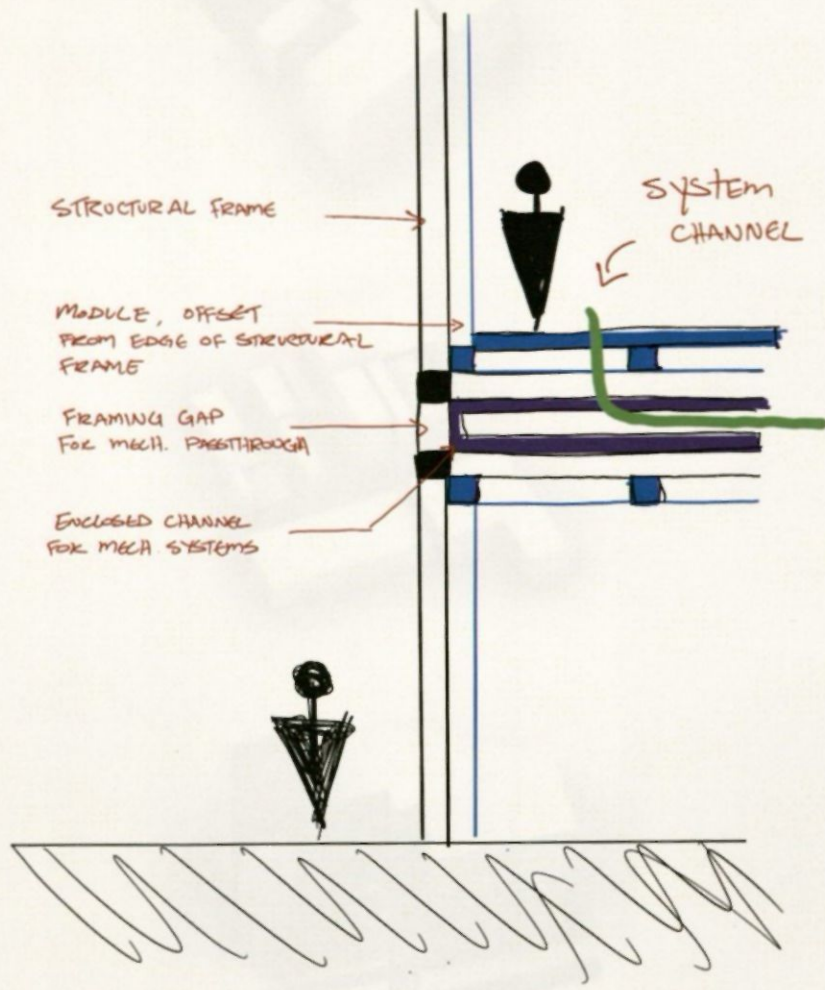 STRUCTURAL FRAME
SYSTEM
CHANNEL
MODULE, OFFSET
FROM EDGE OF STRUCTURAL
FRAME
FRAMING GAP
FOR MECH. PASSTHROUGH
ENCLOSED CHANNEL
FOR MECH SYSTEMS